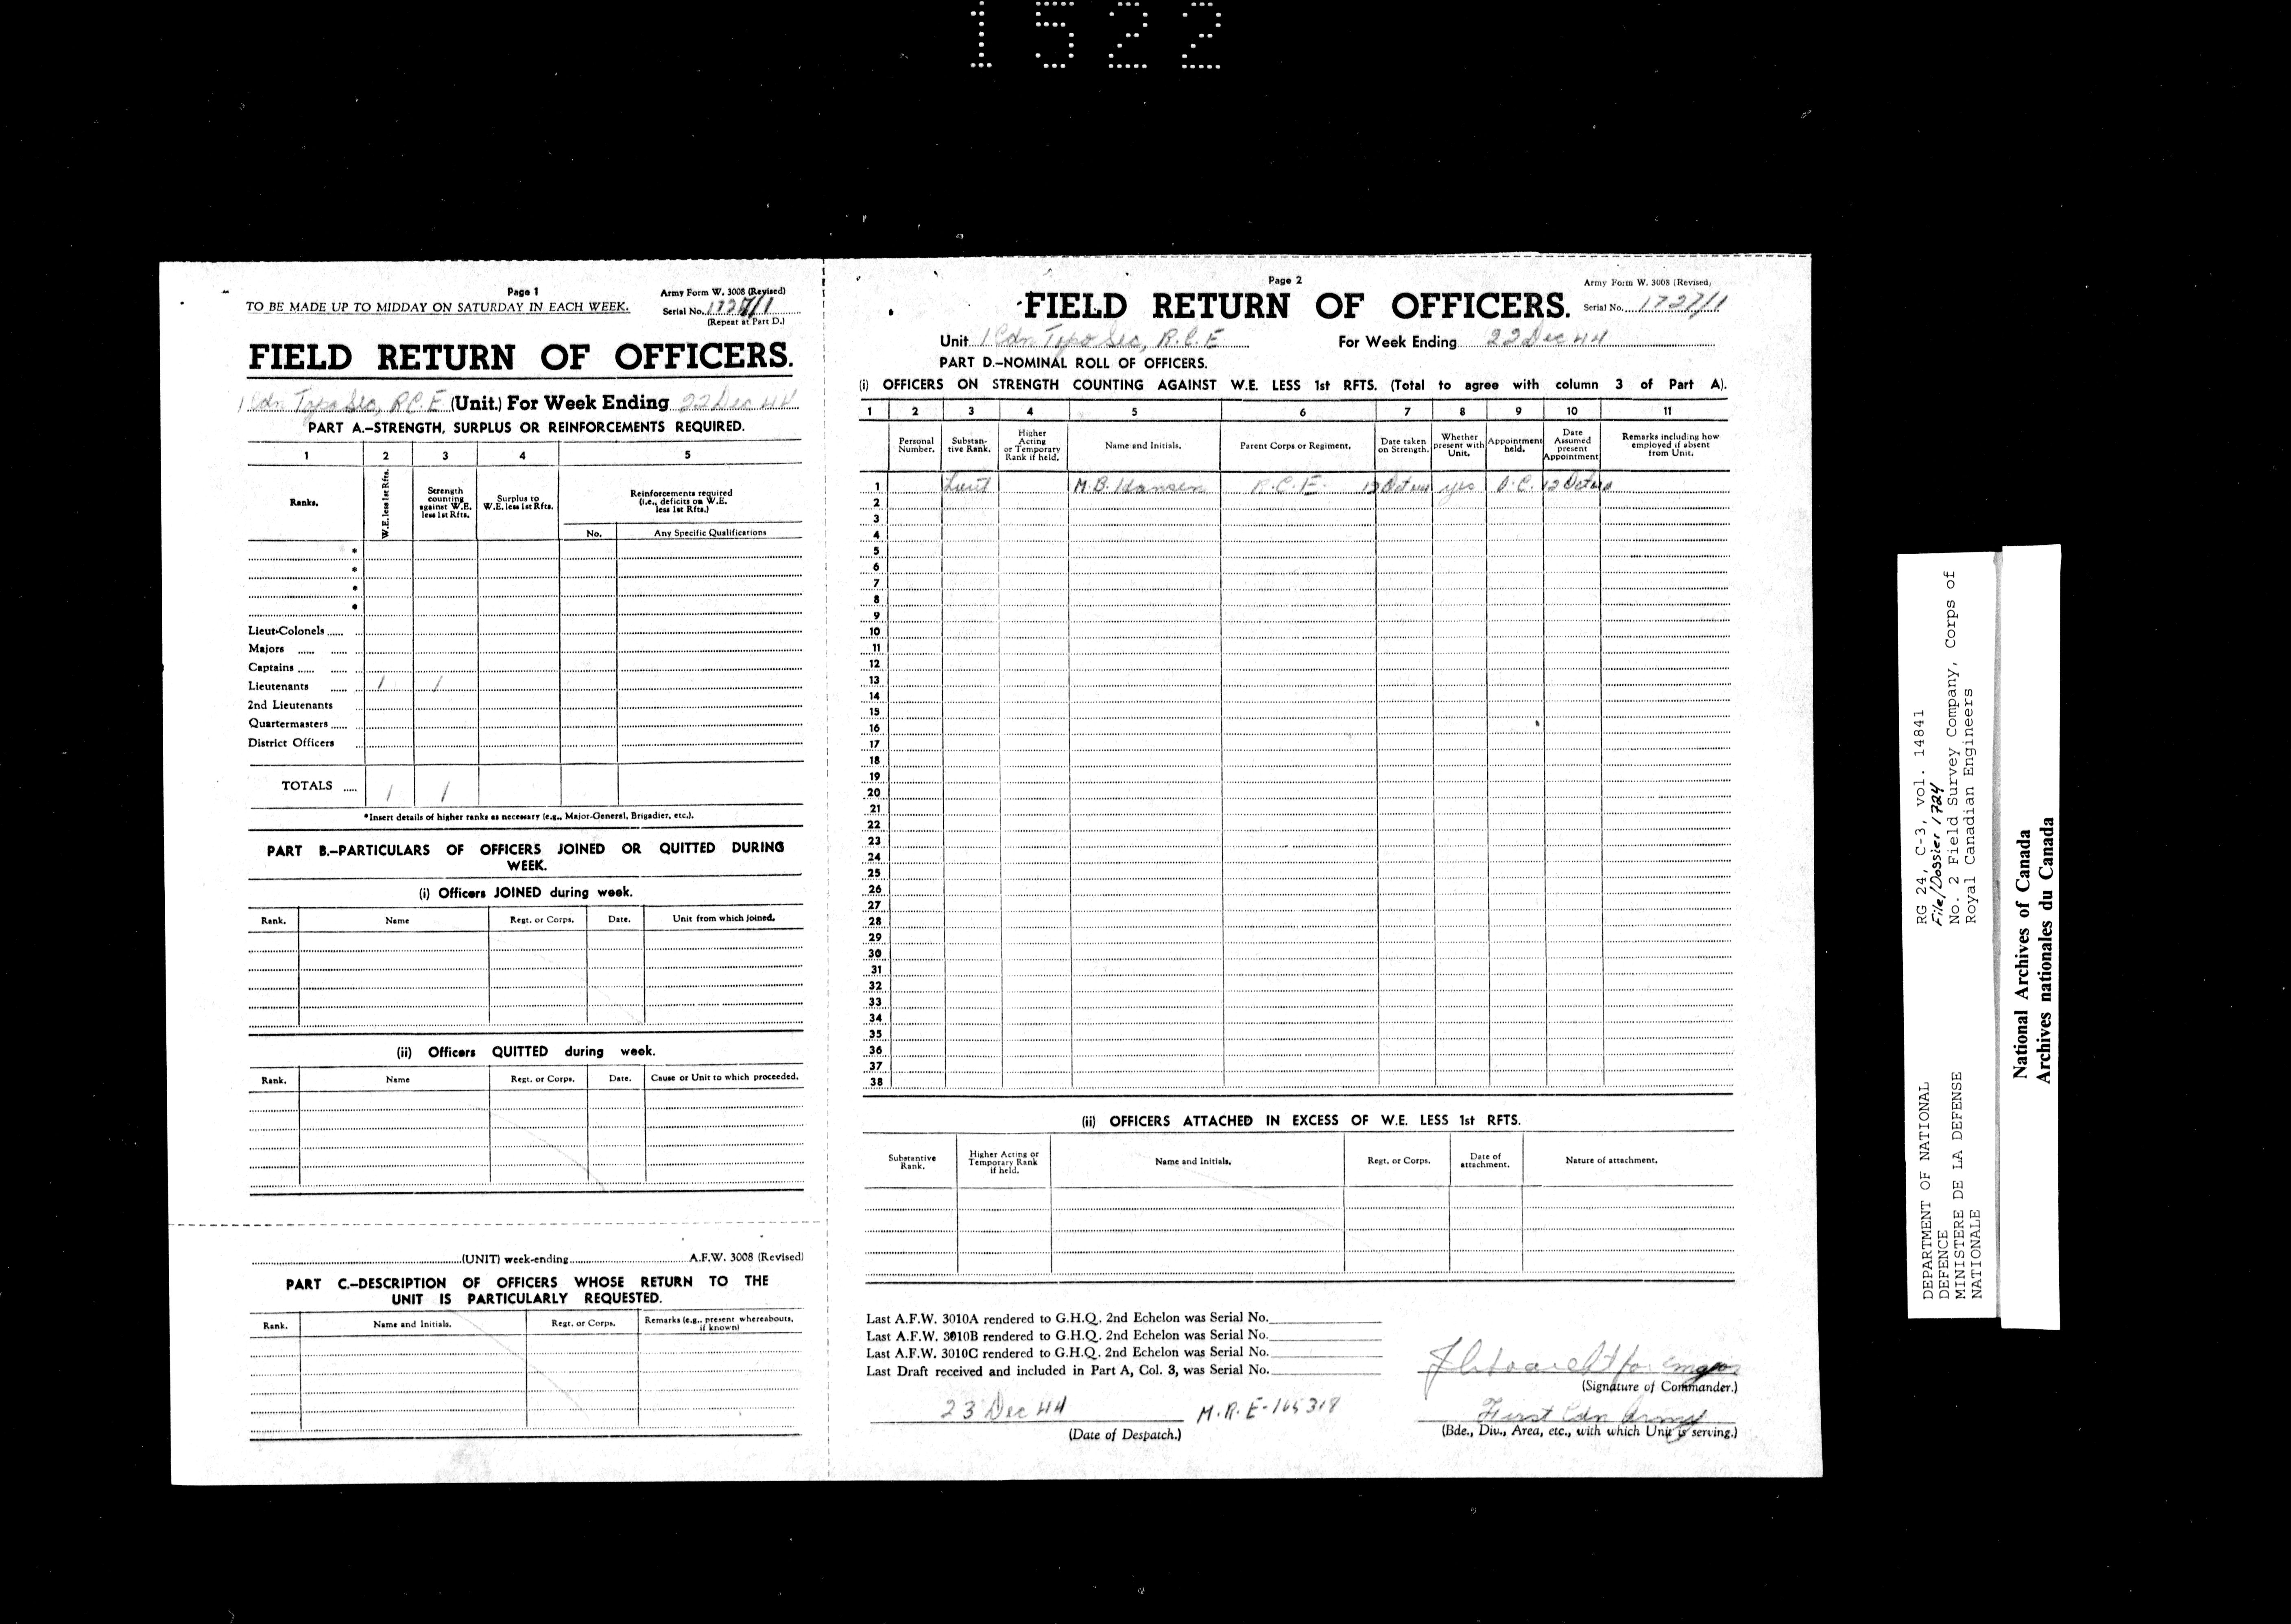 1522
Page 1
Army Form W. 3008 (Revised)
TO BE MADE UP TO MIDDAY ON SATURDAY IN EACH WEEK.
Serial No. 1727/1
(Repeat at Part D.)
FIELD RETURN OF OFFICERS.
1 Cdn Topo Sec, R.C.E (Unit.) For Week Ending 22 Dec 44
PART A.-STRENGTH, SURPLUS OR REINFORCEMENTS REQUIRED.
1 2 3 4 5
Ranks. W.E. less 1st Rfts. Strength counting against W.E. less 1st Rfts. Surplus to W.E. less 1st Rfts. Reinforcements required (i.e., deficits on W.E. less 1st Rfts.)
No. Any Specific Qualifications
*
*
*
*
Lieut-Colonels
Majors
Captains
Lieutenants 1 1
2nd Lieutenants
Quartermasters
District Officers
TOTALS 1 1
*Insert details of higher ranks as necessary (e.g., Major-General, Brigadier, etc.).
PART B.-PARTICULARS OF OFFICERS JOINED OR QUITTED DURING
WEEK.
(i) Officers JOINED during week.
Rank. Name Regt. or Corps. Date. Unit from which joined.
(ii) Officers QUITTED during week.
Rank. Name Regt. or Corps. Date. Cause or Unit to which proceeded.
(UNIT) week-ending A.F.W. 3008 (Revised)
PART C.-DESCRIPTION OF OFFICERS WHOSE RETURN TO THE
UNIT IS PARTICULARLY REQUESTED.
Rank. Name and Initials. Regt. or Corps. Remarks (e.g., present whereabouts, if known)
Page 2
Army Form W. 3008 (Revised)
FIELD RETURN OF OFFICERS.
Serial No. 1727/1
Unit 1 Cdn Topo Sec, R.C.E For Week Ending 22 Dec 44
PART D.-NOMINAL ROLL OF OFFICERS.
(i) OFFICERS ON STRENGTH COUNTING AGAINST W.E. LESS 1st RFTS. (Total to agree with column 3 of Part A).
1 2 3 4 5 6 7 8 9 10 11
Personal Number. Substantive Rank. Higher Acting or Temporary Rank if held. Name and Initials. Parent Corps or Regiment. Date taken on Strength. Whether present with Unit. Appointment held. Date Assumed present Appointment Remarks including how employed if absent from Unit.
1 Lieut M.B. Hansen R.C.E. 12 Oct 44 yes O.C. 12 Oct 44
2
3
4
5
6
7
8
9
10
11
12
13
14
15
16
17
18
19
20
21
22
23
24
25
26
27
28
29
30
31
32
33
34
35
36
37
38
(ii) OFFICERS ATTACHED IN EXCESS OF W.E. LESS 1st RFTS.
Substantive Rank. Higher Acting or Temporary Rank if held. Name and Initials. Regt. or Corps. Date of attachment. Nature of attachment.
Last A.F.W. 3010A rendered to G.H.Q. 2nd Echelon was Serial No.
Last A.F.W. 3010B rendered to G.H.Q. 2nd Echelon was Serial No.
Last A.F.W. 3010C rendered to G.H.Q. 2nd Echelon was Serial No.
Last Draft received and included in Part A, Col. 3, was Serial No.
for major
(Signature of Commander.)
23 Dec 44 M.R.E-165318 First Cdn Army
(Date of Despatch.) (Bde., Div., Area, etc., with which Unit is serving.)
DEPARTMENT OF NATIONAL
DEFENCE
MINISTERE DE LA DEFENSE
NATIONALE
RG 24, C-3, vol. 14841
File/Dossier 1724
No. 2 Field Survey Company, Corps of
Royal Canadian Engineers
National Archives of Canada
Archives nationales du Canada